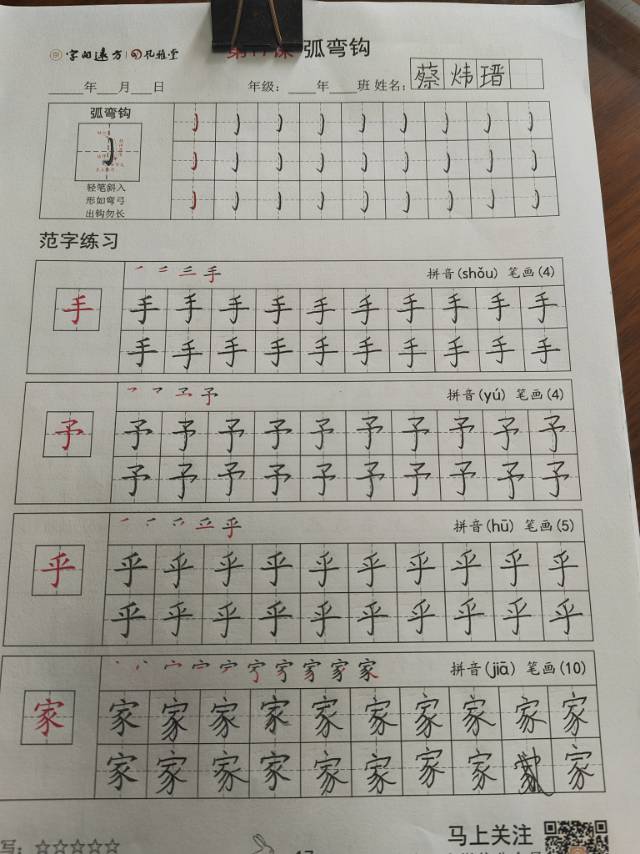 字由远方 风雅堂
第17课 弧弯钩
____年____月____日 年级：____年____班 姓名：蔡炜瑨
弧弯钩
轻笔斜入
形如弯弓
出钩勿长
范字练习
手 拼音(shǒu) 笔画(4)
手
手手手手手手手手手手
手手手手手手手手手手
予 拼音(yú) 笔画(4)
予
予予予予予予予予予予
予予予予予予予予予予
乎 拼音(hū) 笔画(5)
乎
乎乎乎乎乎乎乎乎乎乎
乎乎乎乎乎乎乎乎乎乎
家 拼音(jiā) 笔画(10)
家
家家家家家家家家家家
家家家家家家家家家家
写：☆☆☆☆☆
马上关注